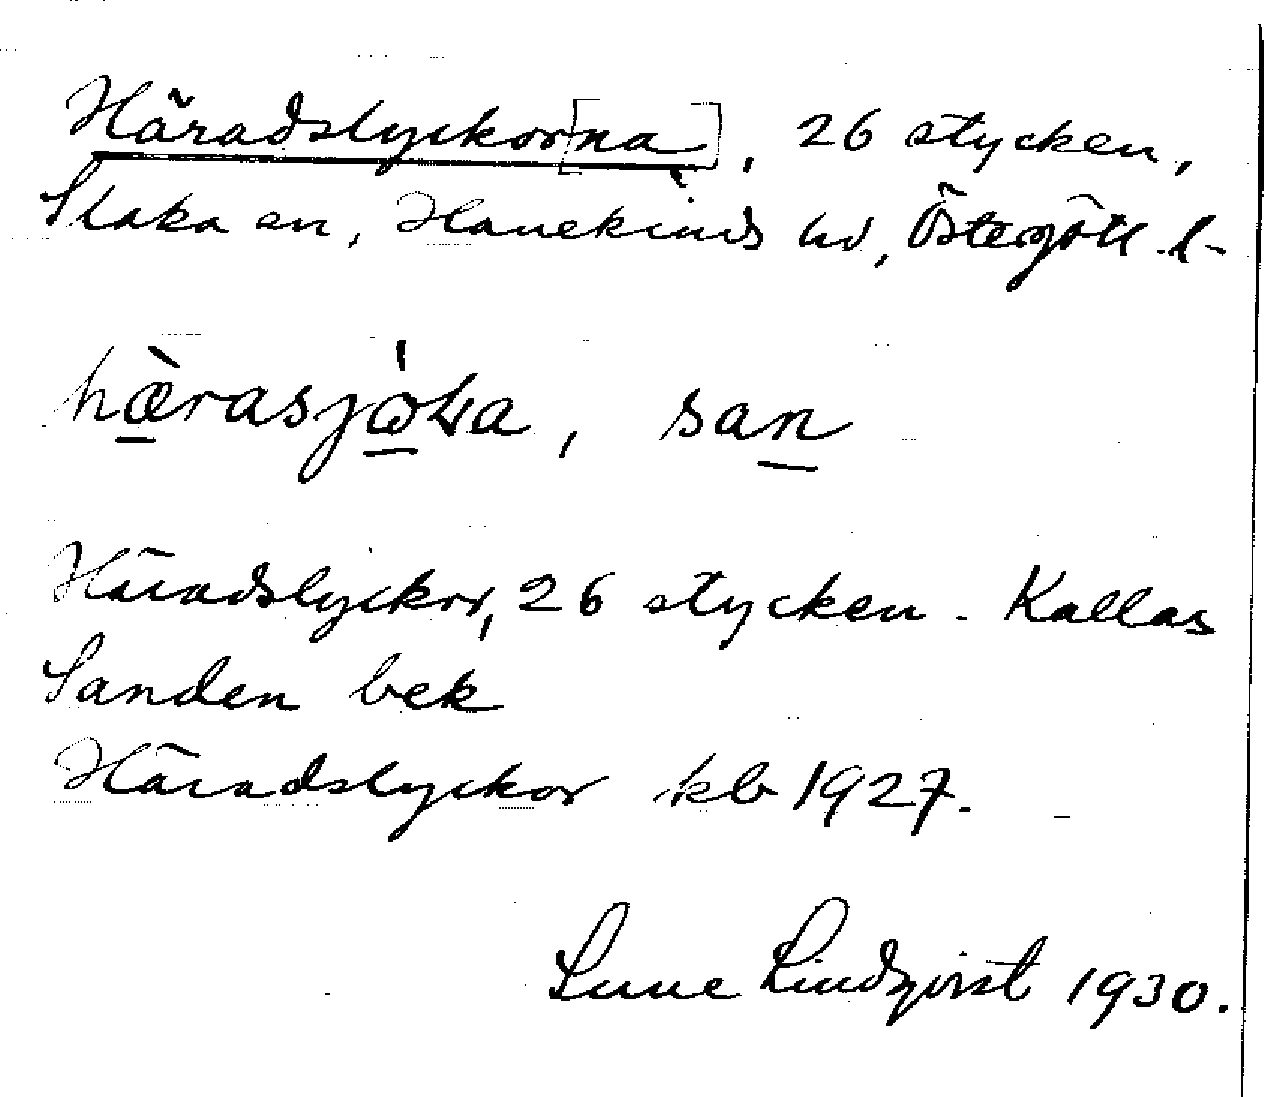 Häradslyckor[na], 26 stycken,
Slaka sn, Hanekinds hd, Östergötl. l.
hæ̀rasjɷ̀ka, san
Häradslyckor, 26 stycken. Kallas
Sanden bek
Häradslyckor kb 1927.
Sune Lindqvist 1930.